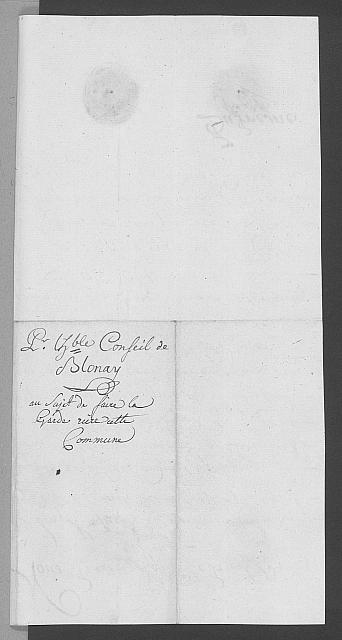 Pr. l'hble Conseil de
Blonay
au Sujet de faire la
Garde riere cette
Commune